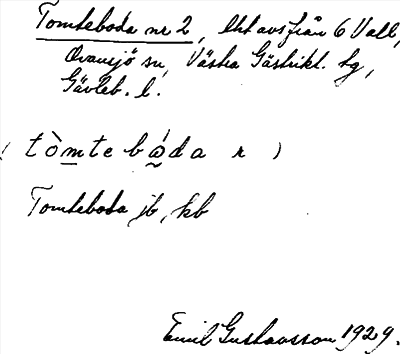 Tomteboda nr 2, lht avs från 6 Vall,
Ovansjö sn, Västra Gästrikl. tg,
Gävleb. l.
( tòmte bó̰da r )
Tomteboda jb, kb
Emil Gustavsson 1929.